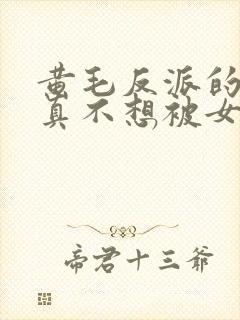 黄毛反派的
真不想被女
帝君十三爷